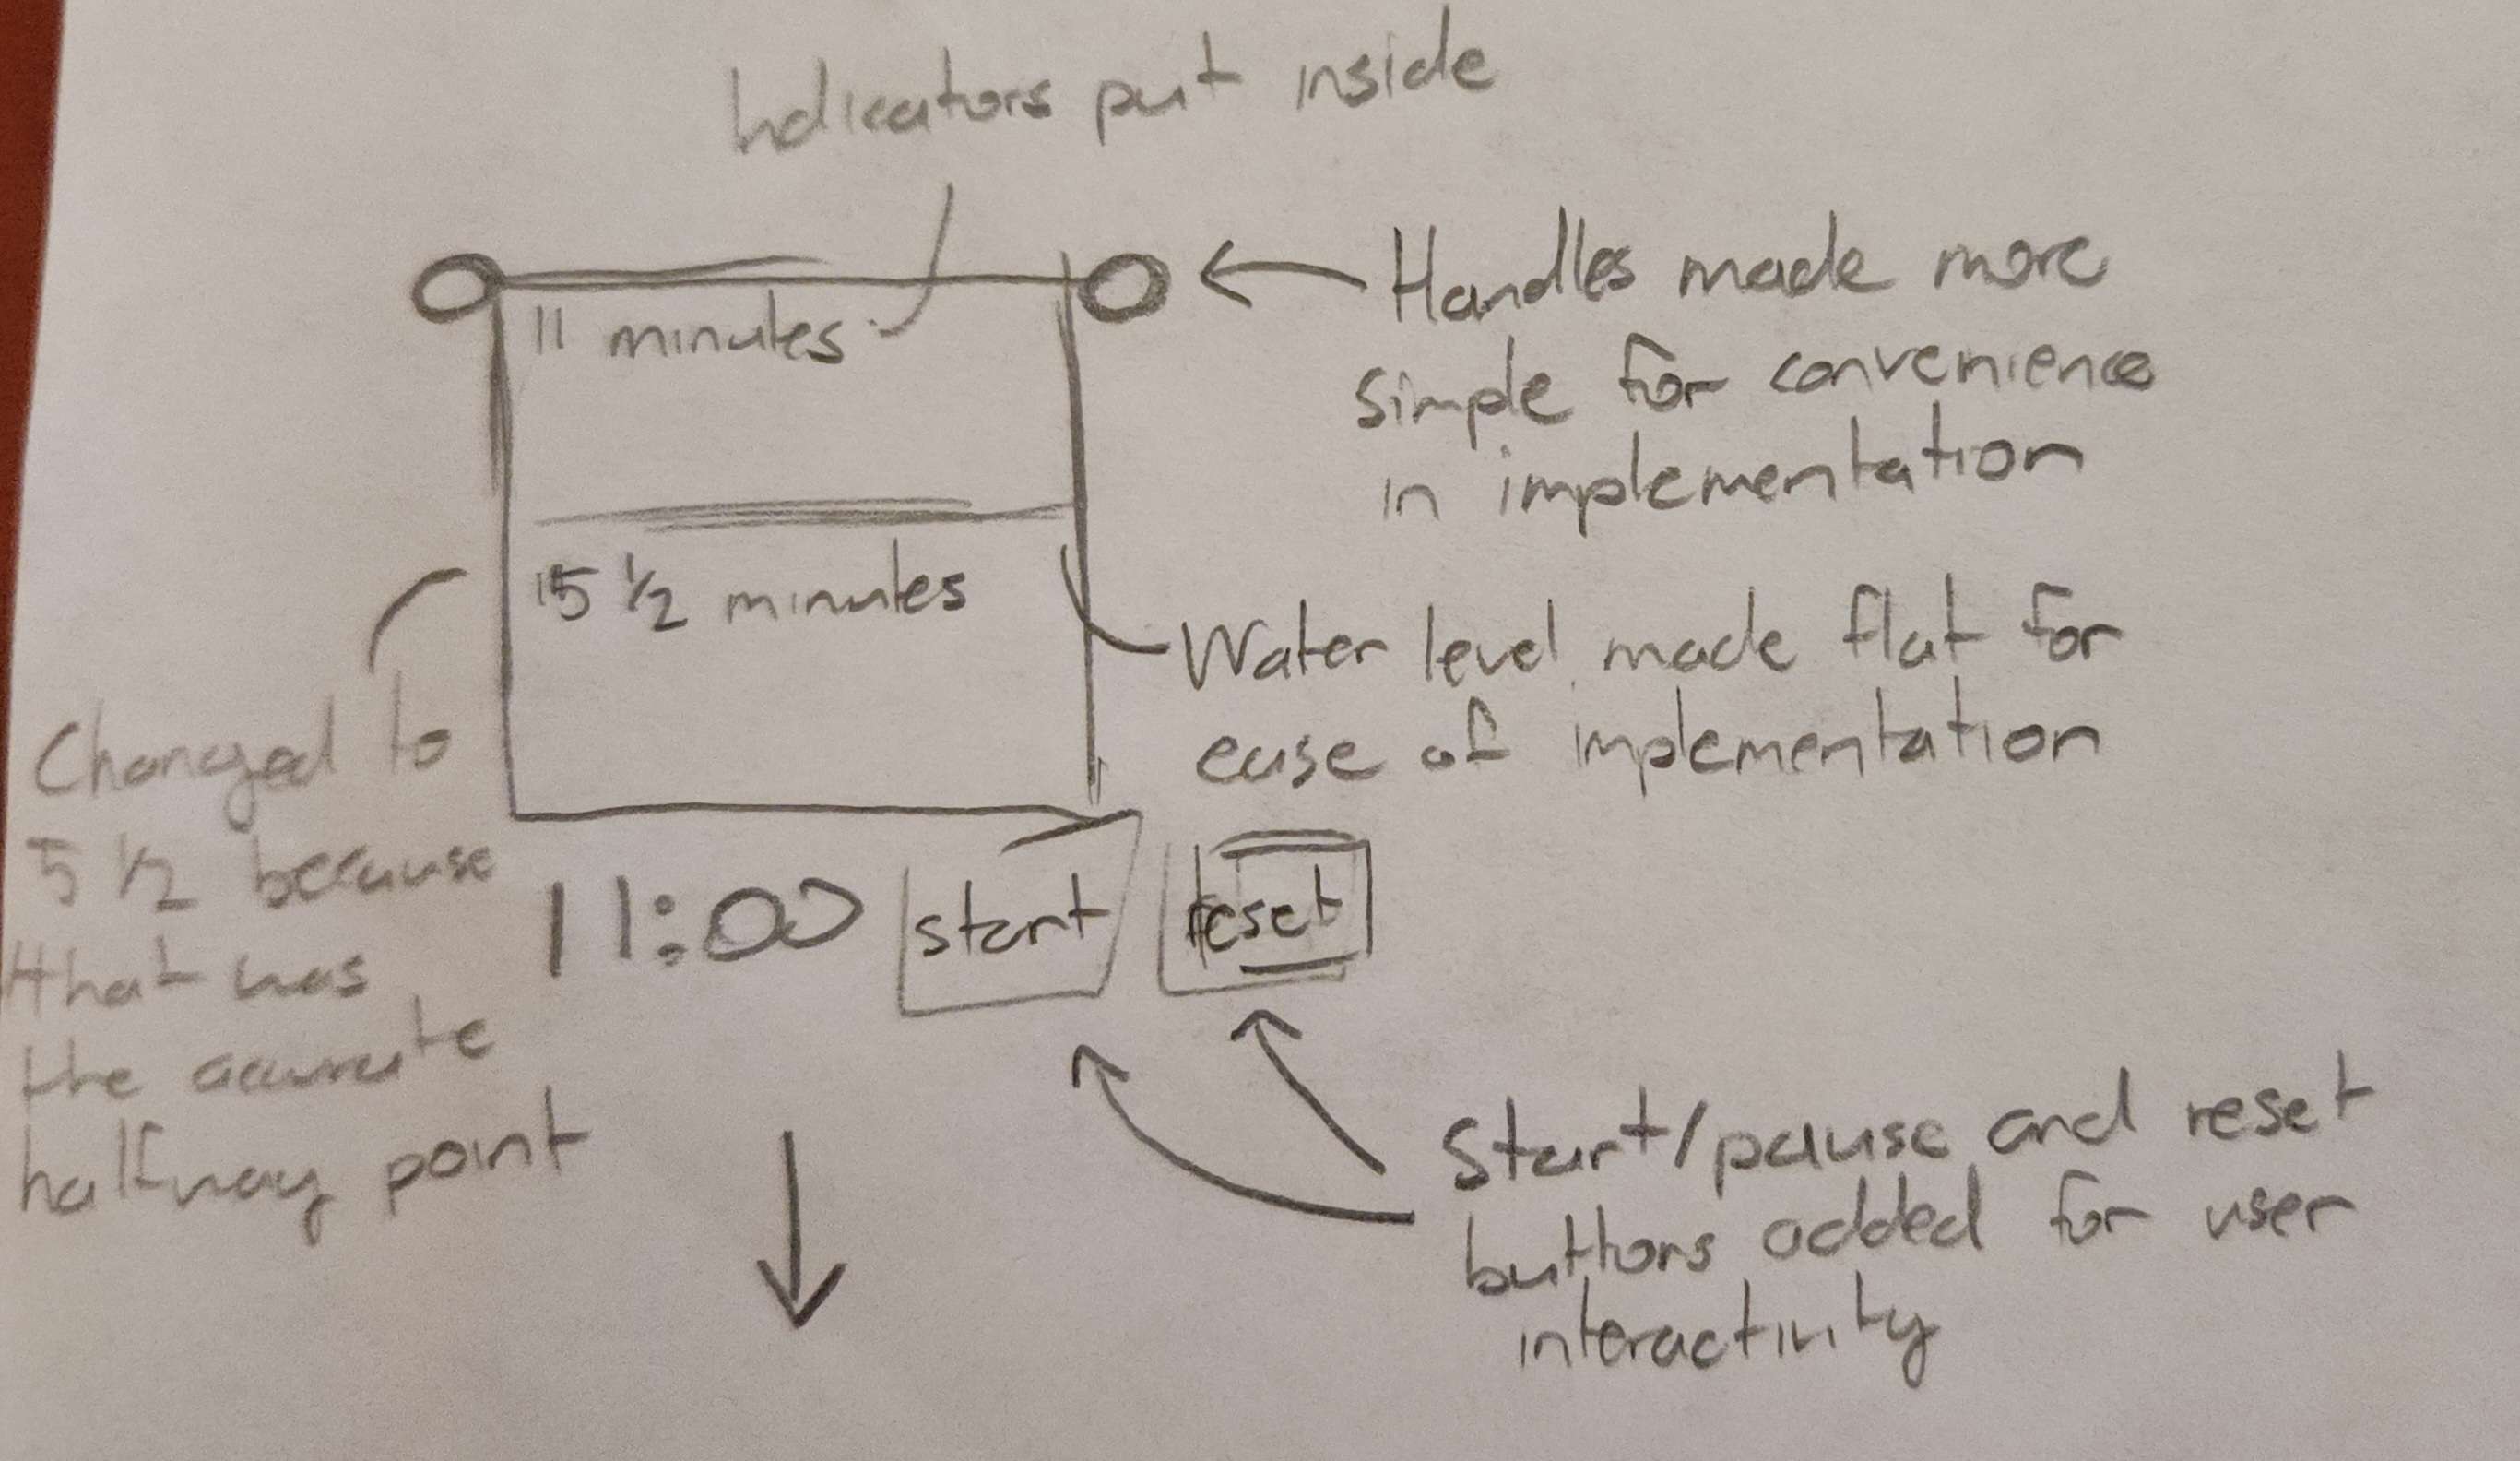 Indicators put inside
11 minutes
Handles made more
simple for convenience
in implementation
5 1/2 minutes
Water level made flat for
ease of implementation
Changed to
5 1/2 because
that was
the accurate
halfway point
11:00 start reset
Start/pause and reset
buttons added for user
interactivity